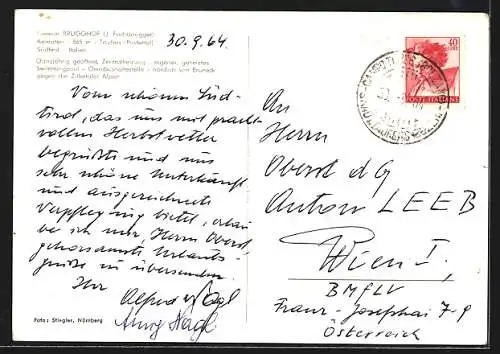 Pension BRUGGHOF (J. Forchtmayer)
Kematen · 865 m · Taufers-(Pustertal)
Südtirol - Italien
Ganzjährig geöffnet, Zentralheizung - eigenes, geheiztes
Swimmingpool - Omnibushaltestelle - nördlich von Bruneck
gegen die Zillertaler Alpen
30.9.64
Vom schönen Süd-
tirol, das uns mit pracht-
vollem Herbstwetter
begrüßte und uns
sehr schöne Unterkunft
und ausgezeichnete
Verpflegung bietet, erlau-
be ich mir, Herrn Oberst,
gehorsamste Urlaubs-
grüße zu übersenden.
Ihr
Alfred Nagl
Nagl
Foto: Stiegler, Nürnberg
40
LIRE
POSTE ITALIANE
An
Herrn
Oberst dG
Anton LEEB
Wien I,
BMfLV
Franz-Josephskai 7-9
Österreich